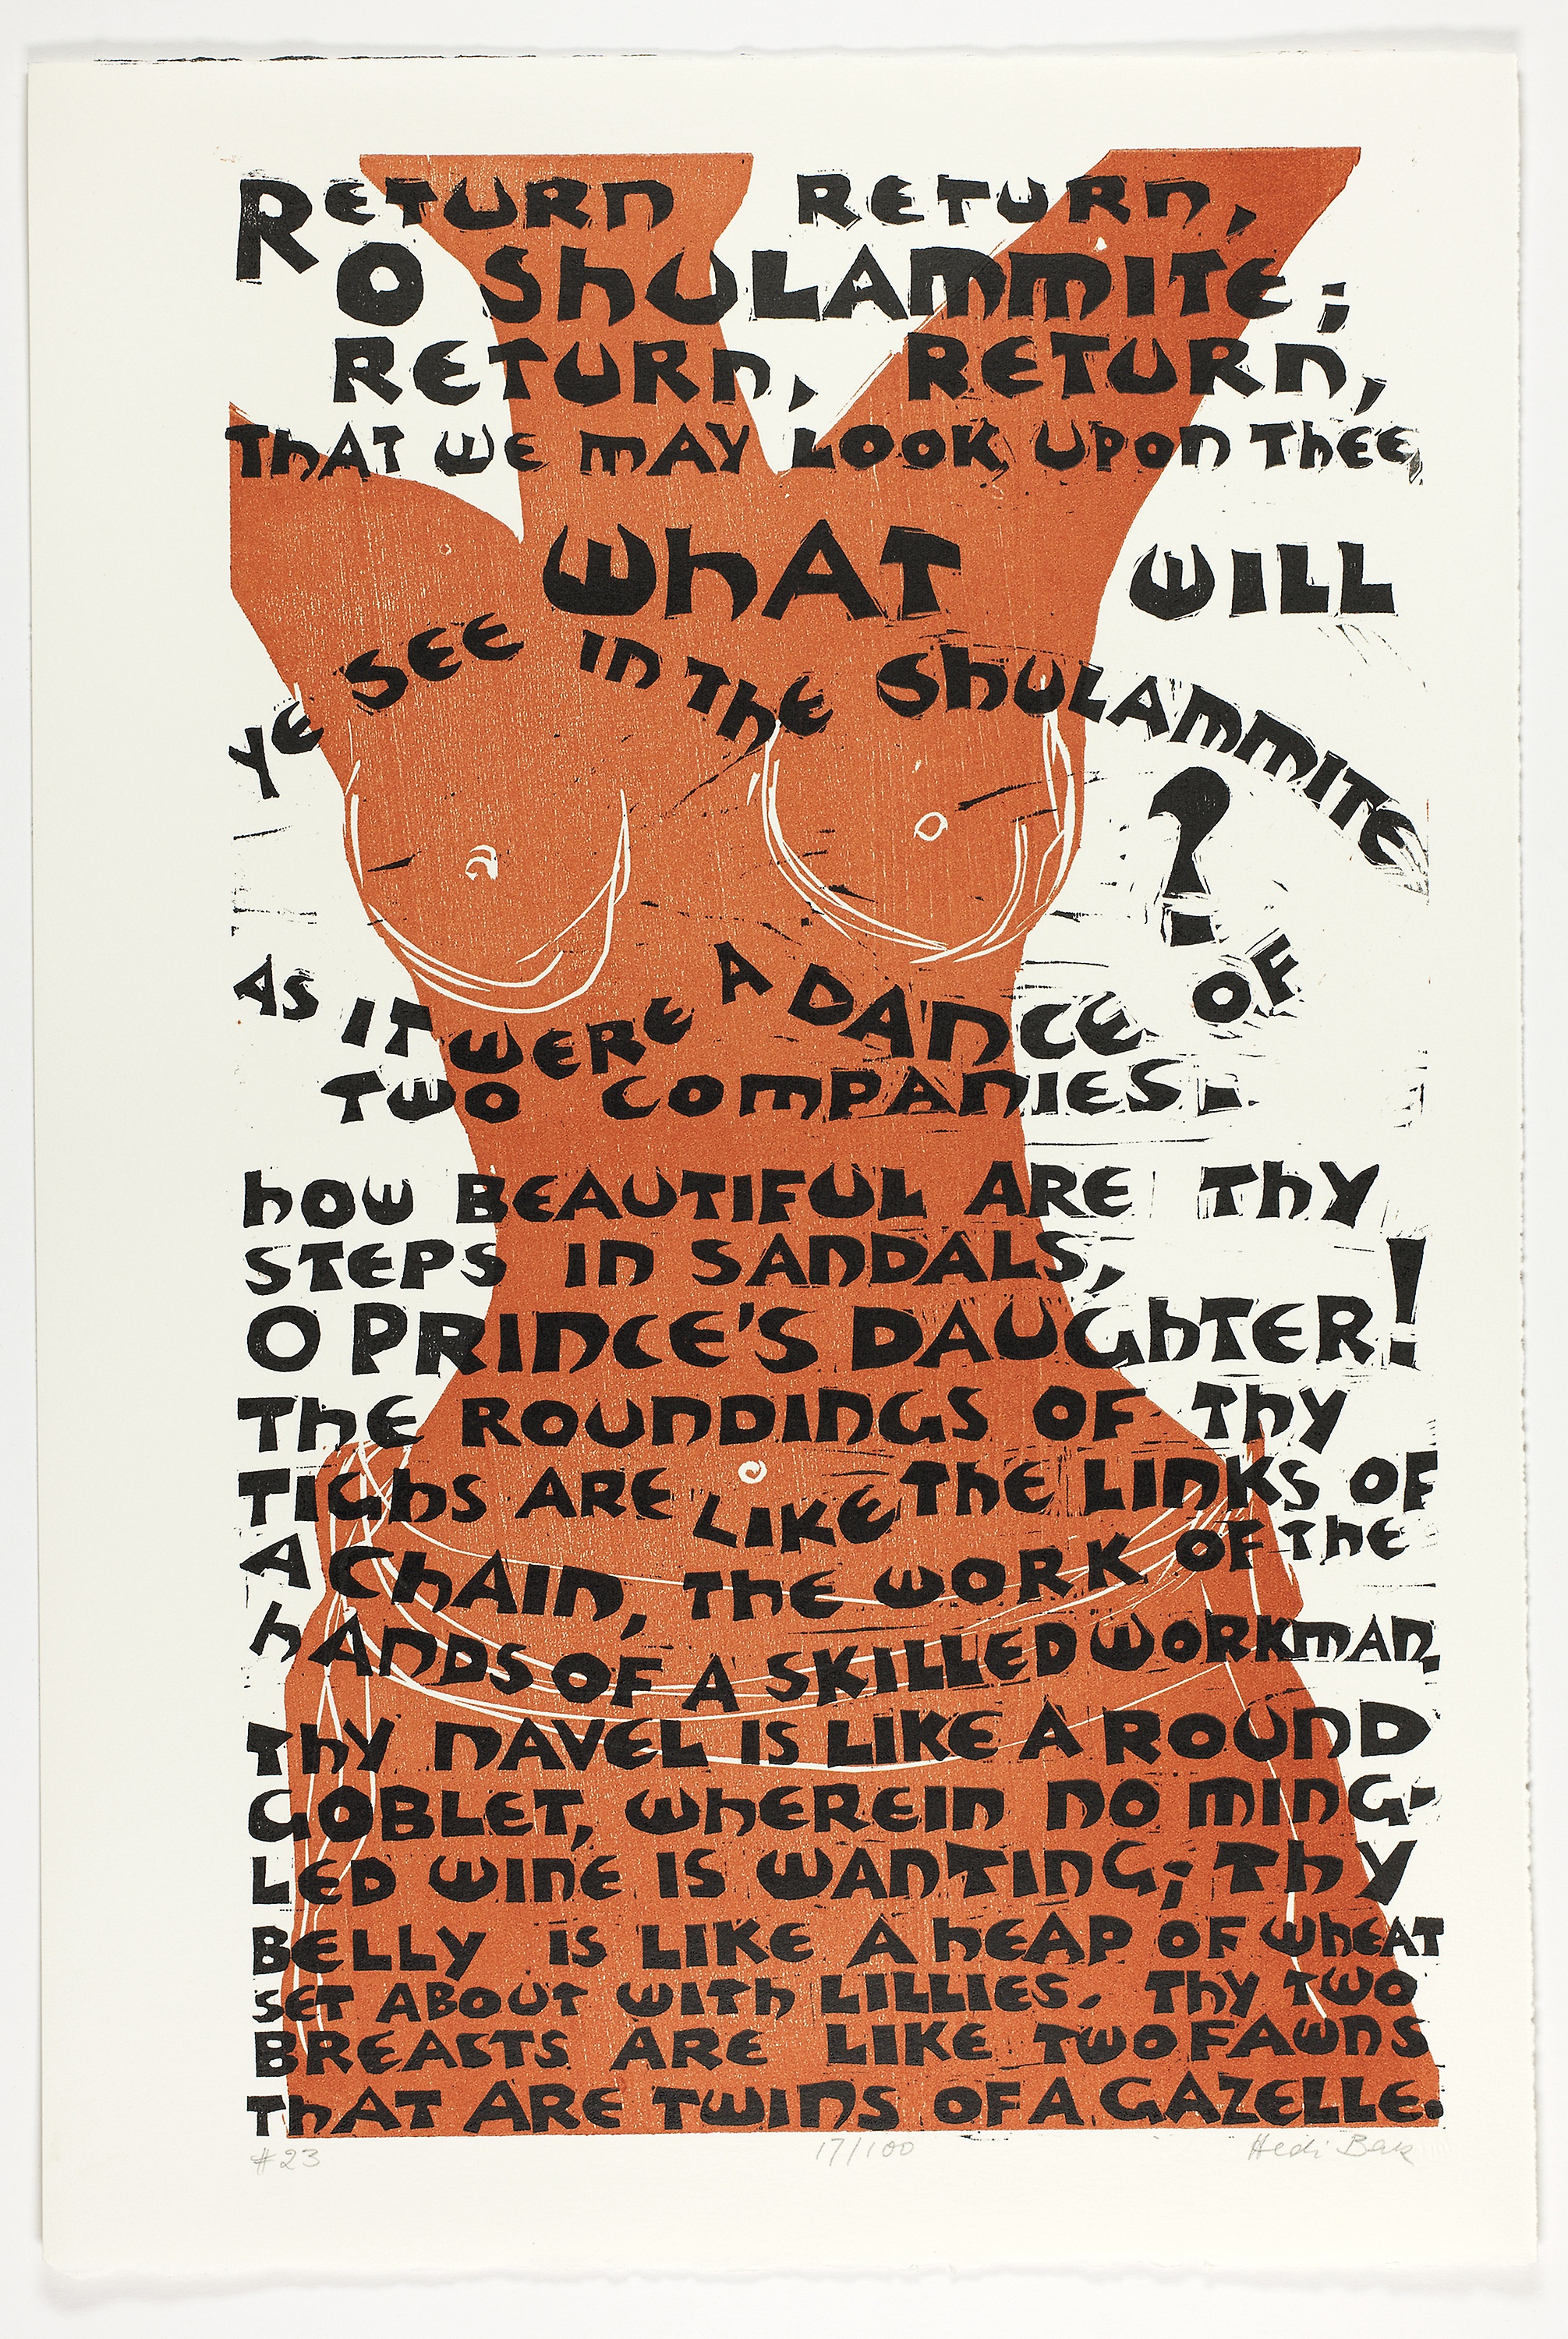 RETURN RETURN,
O ShULAMMITE;
RETURN, RETURN,
ThAT WE MAY LOOK UPON ThEE,
WhAT WILL
YE SEE IN ThE ShULAMMITE
?
AS IT WERE A DANCE OF
TWO COMPANIES.
hOW BEAUTIFUL ARE ThY
STEPS IN SANDALS,
O PRINCE'S DAUGhTER!
ThE ROUNDINGS OF ThY
TIGhS ARE LIKE ThE LINKS OF
A ChAIN, ThE WORK OF ThE
hANDS OF A SKILLED WORKMAN.
ThY NAVEL IS LIKE A ROUND
GOBLET, WhEREIN NO MING-
LED WINE IS WANTING; ThY
BELLY IS LIKE A hEAP OF WhEAT
SET ABOUT WITh LILLIES. ThY TWO
BREASTS ARE LIKE TWO FAWNS
ThAT ARE TWINS OF A GAZELLE.
#23 17/100 Hedi Bak